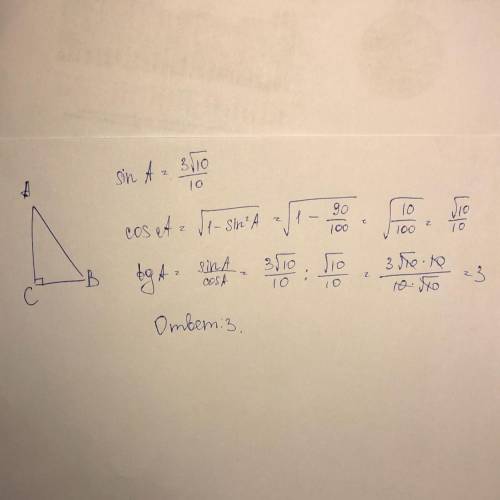 A
C
B
sin A = 3√10/10
cos A = √(1-sin²A) = √(1 - 90/100) = √(10/100) = √10/10
tg A = sinA/cosA = 3√10/10 : √10/10 = 3√10·10/10·√10 = 3
Ответ: 3.